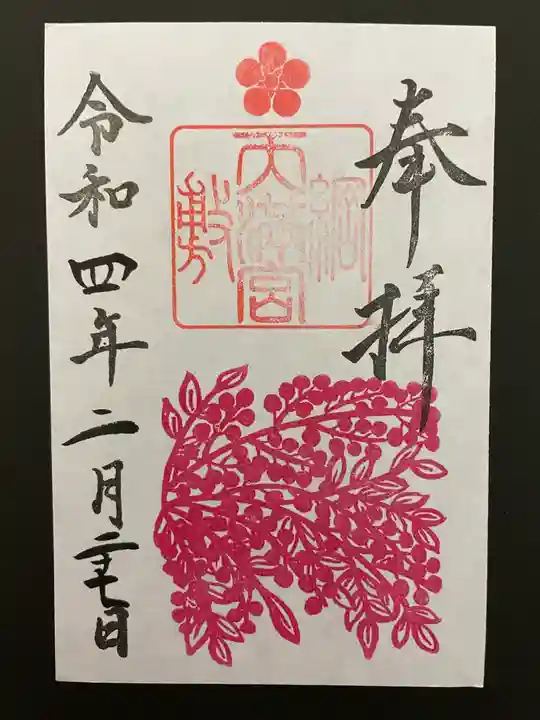 奉拝
綱
天満宮
敷
令和四年二月二十七日